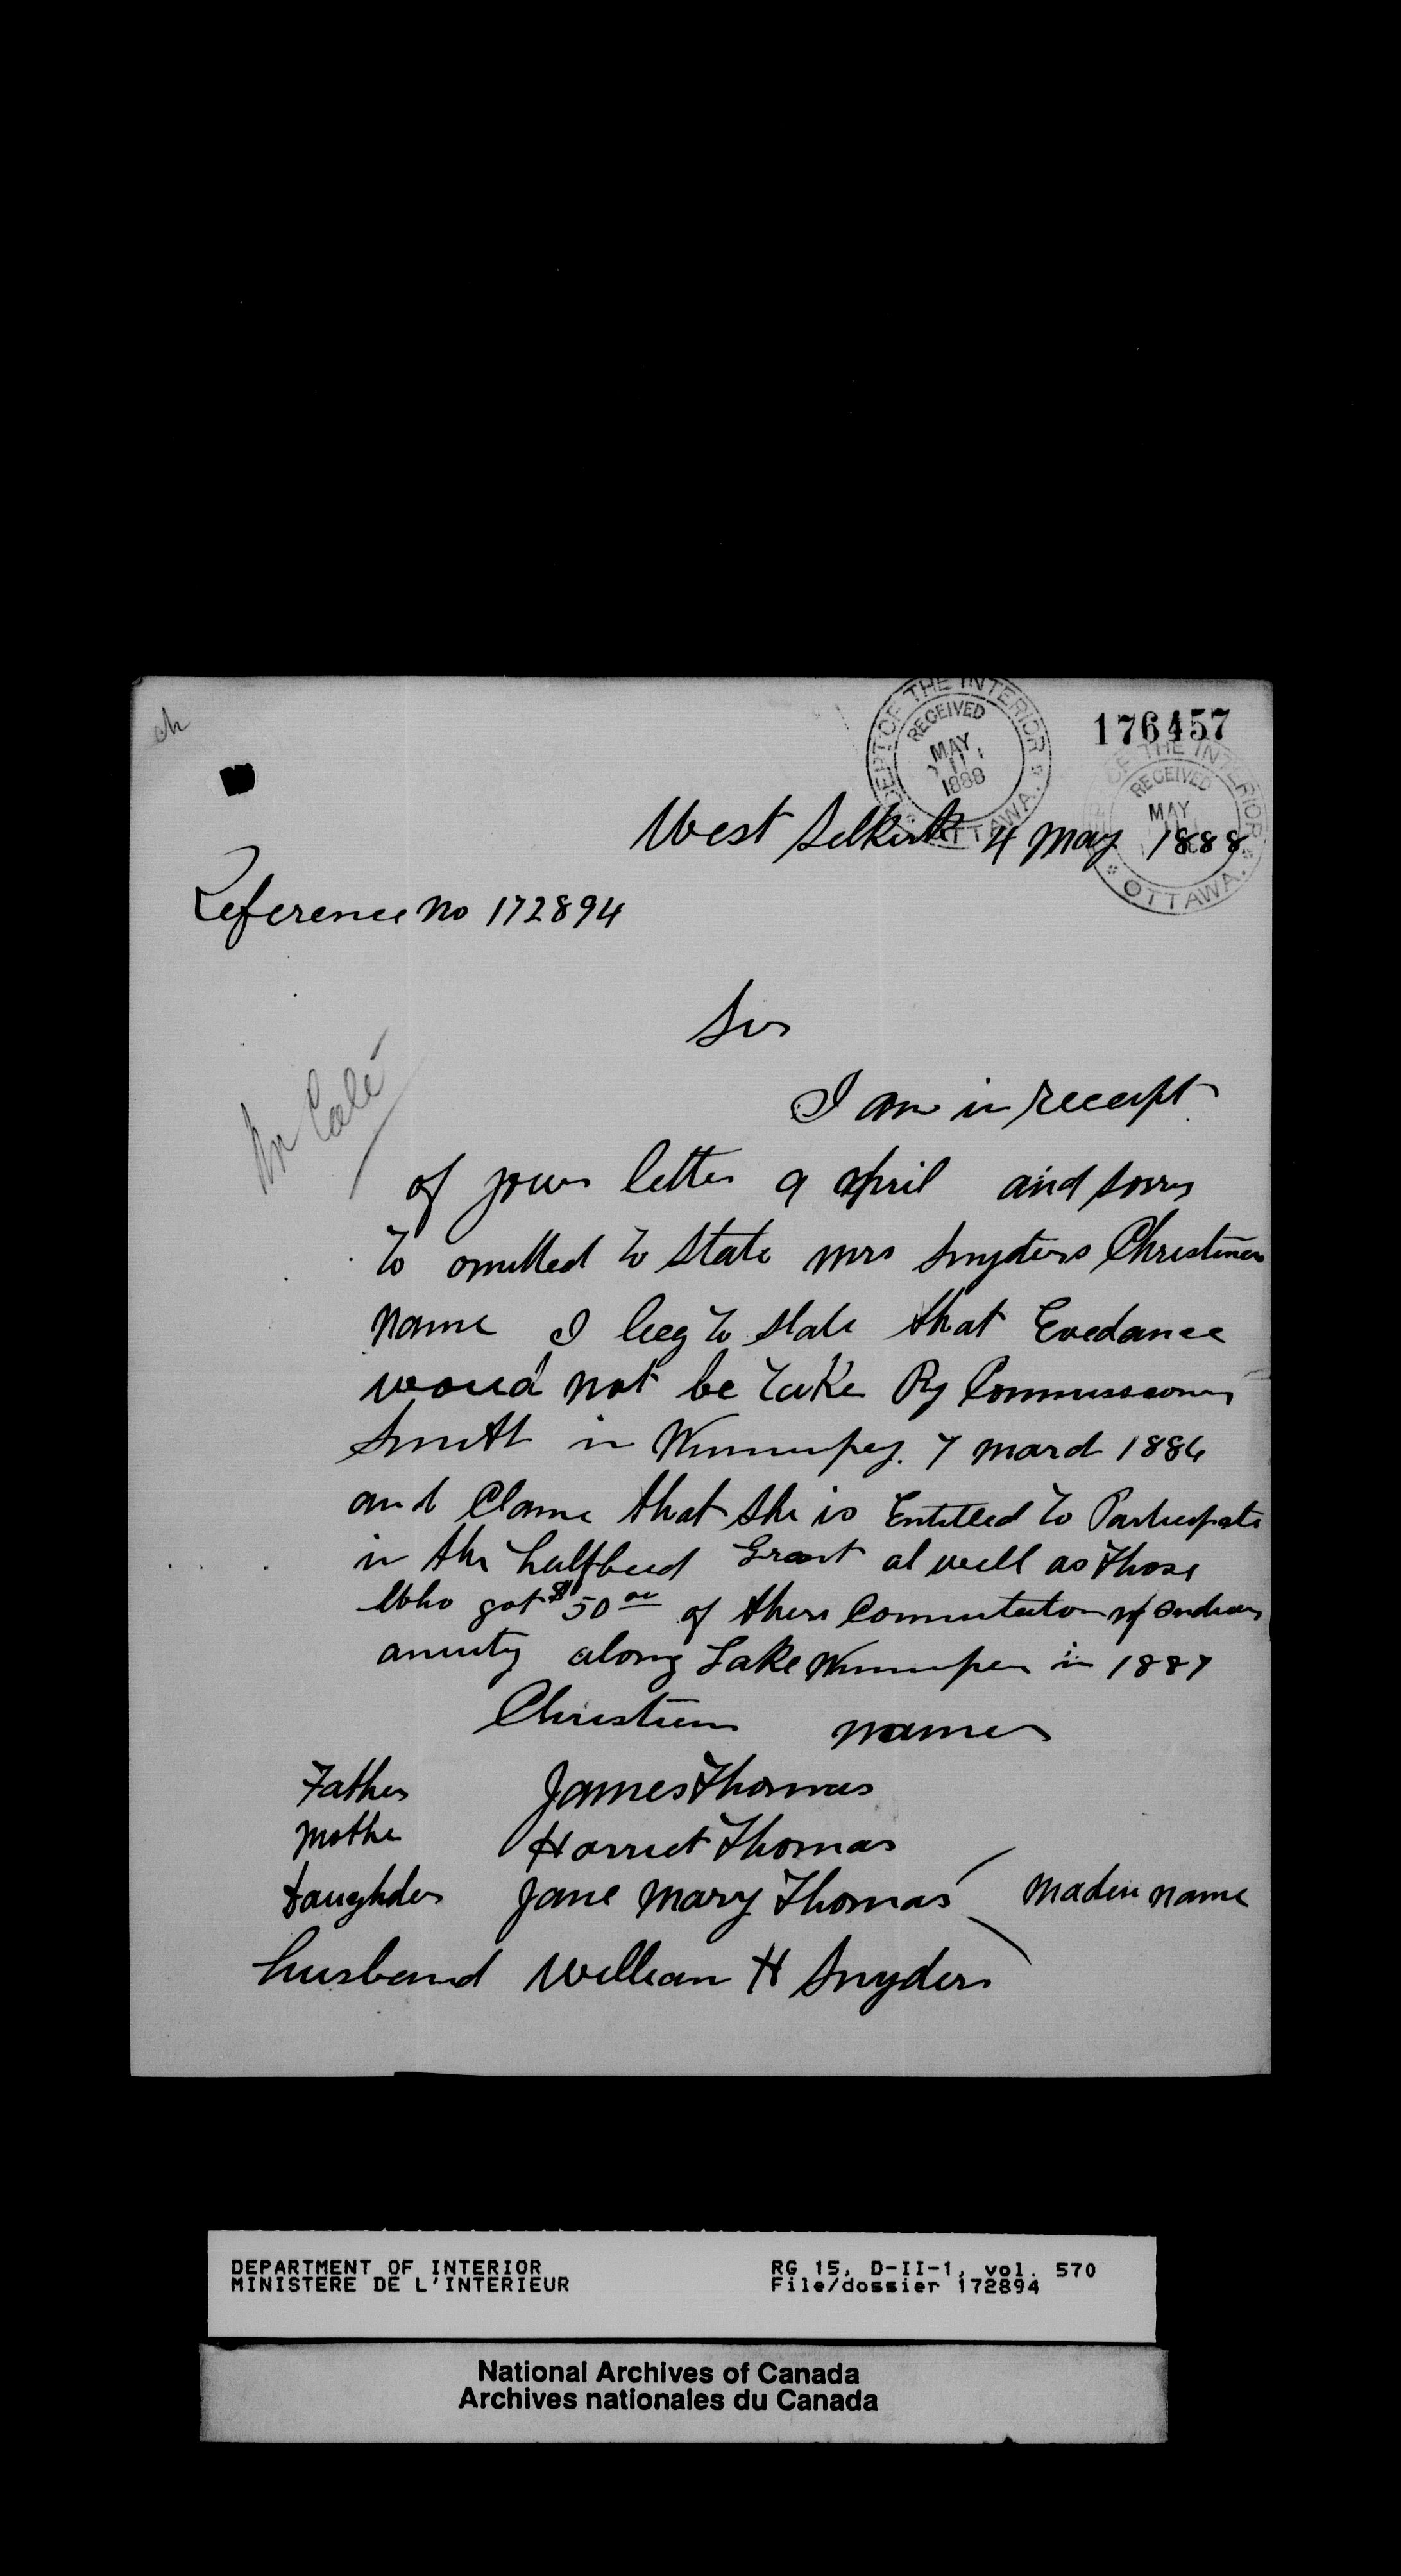 ch
176457
DEPT OF THE INTERIOR
RECEIVED
MAY 11
1888
OTTAWA.
OF THE INTERIOR
RECEIVED
MAY
OTTAWA.
West Selkirk 4 May 1888
Reference no 172894
Sir
Mr Cole
I am in receipt
of your letter 9 april and sorry
to omitted to state mrs Snyders Christian
name I beg to state that Evedance
would not be take By Commissioner
Smith in Winnipeg. 7 march 1886
and Clame that she is Entitled to Participate
in the halfbreed Grant al well as those
who got $50 00 of there Commutaton of Indian
anuity along Lake Winnipeg in 1887
Christian names
Father James Thomas
Mother Harriet Thomas
daughder Jane Mary Thomas Maden name
husband William H Snyder
DEPARTMENT OF INTERIOR RG 15, D-II-1, vol. 570
MINISTERE DE L'INTERIEUR File/dossier 172894
National Archives of Canada
Archives nationales du Canada